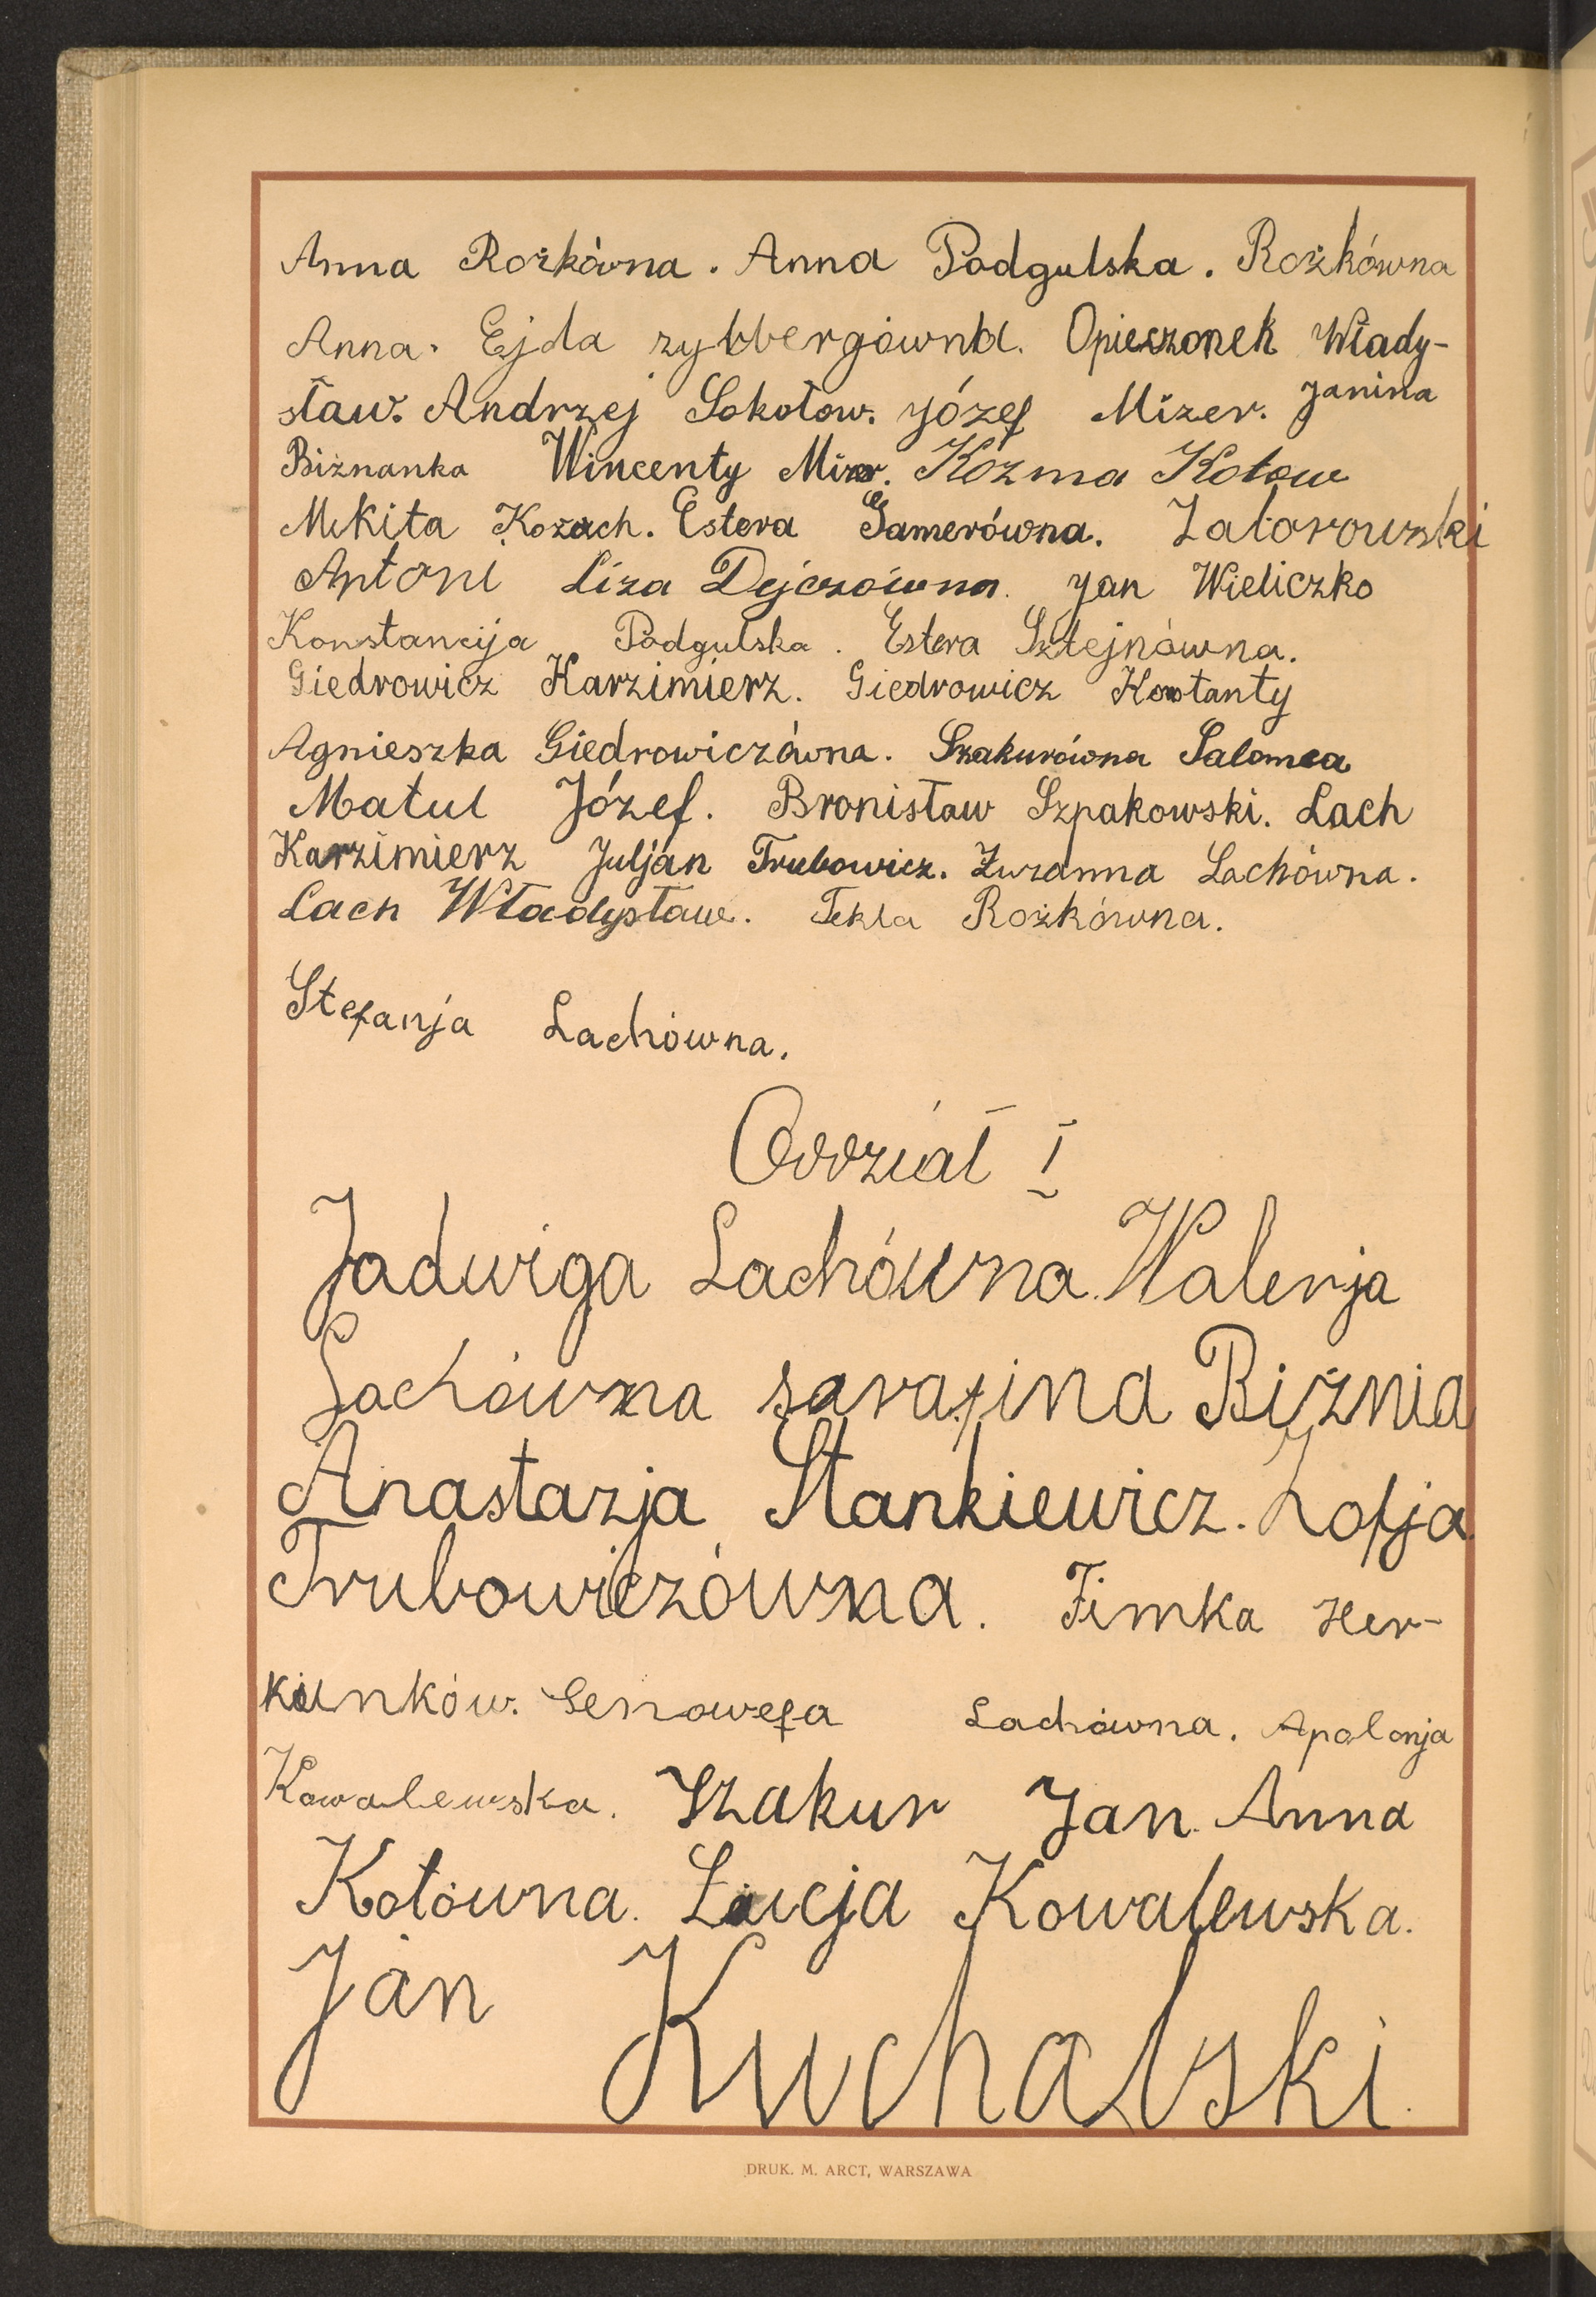 Anna Rożkówna. Anna Podgulska. Rożkówna
Anna. Ejda zylbbergówna. Opieszonek Włady-
sław. Andrzej Sokołow. Józef Mizer. Janina
Biżnanka Wincenty Mizer. Kózma Kotow
Mikita Kozach. Estera Gamerówna. Zatorowski
Antoni Liza Dejczówna. Jan Wieliczko
Konstancija Podgulska. Estera Sztejnówna.
Giedrowicz Karzimierz. Giedrowicz Kostanty
Agnieszka Giedrowiczówna. Szakurówna Salomea
Matul Józef. Bronisław Szpakowski. Lach
Karzimierz Juljan Trubowicz. Zuzanna Lachówna.
Lach Władysław. Tekla Rożkówna.
Stefanja Lachówna.
Oddział I
Jadwiga Lachówna. Walerja
Lachówna sarafina Biżnia
Anastazja Stankiewicz. Zofja
Trubowiczówna. Fimka Her-
kunków. Genowefa Lachówna. Apolonja
Kowalewska. Szakur Jan. Anna
Kotówna. Łucja Kowalewska.
Jan Kuchalski.
DRUK. M. ARCT, WARSZAWA